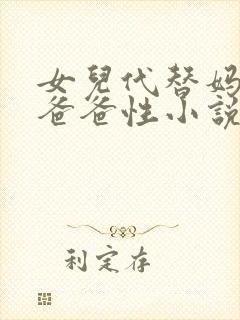 女兒代替媽
爸爸性小說
利定存